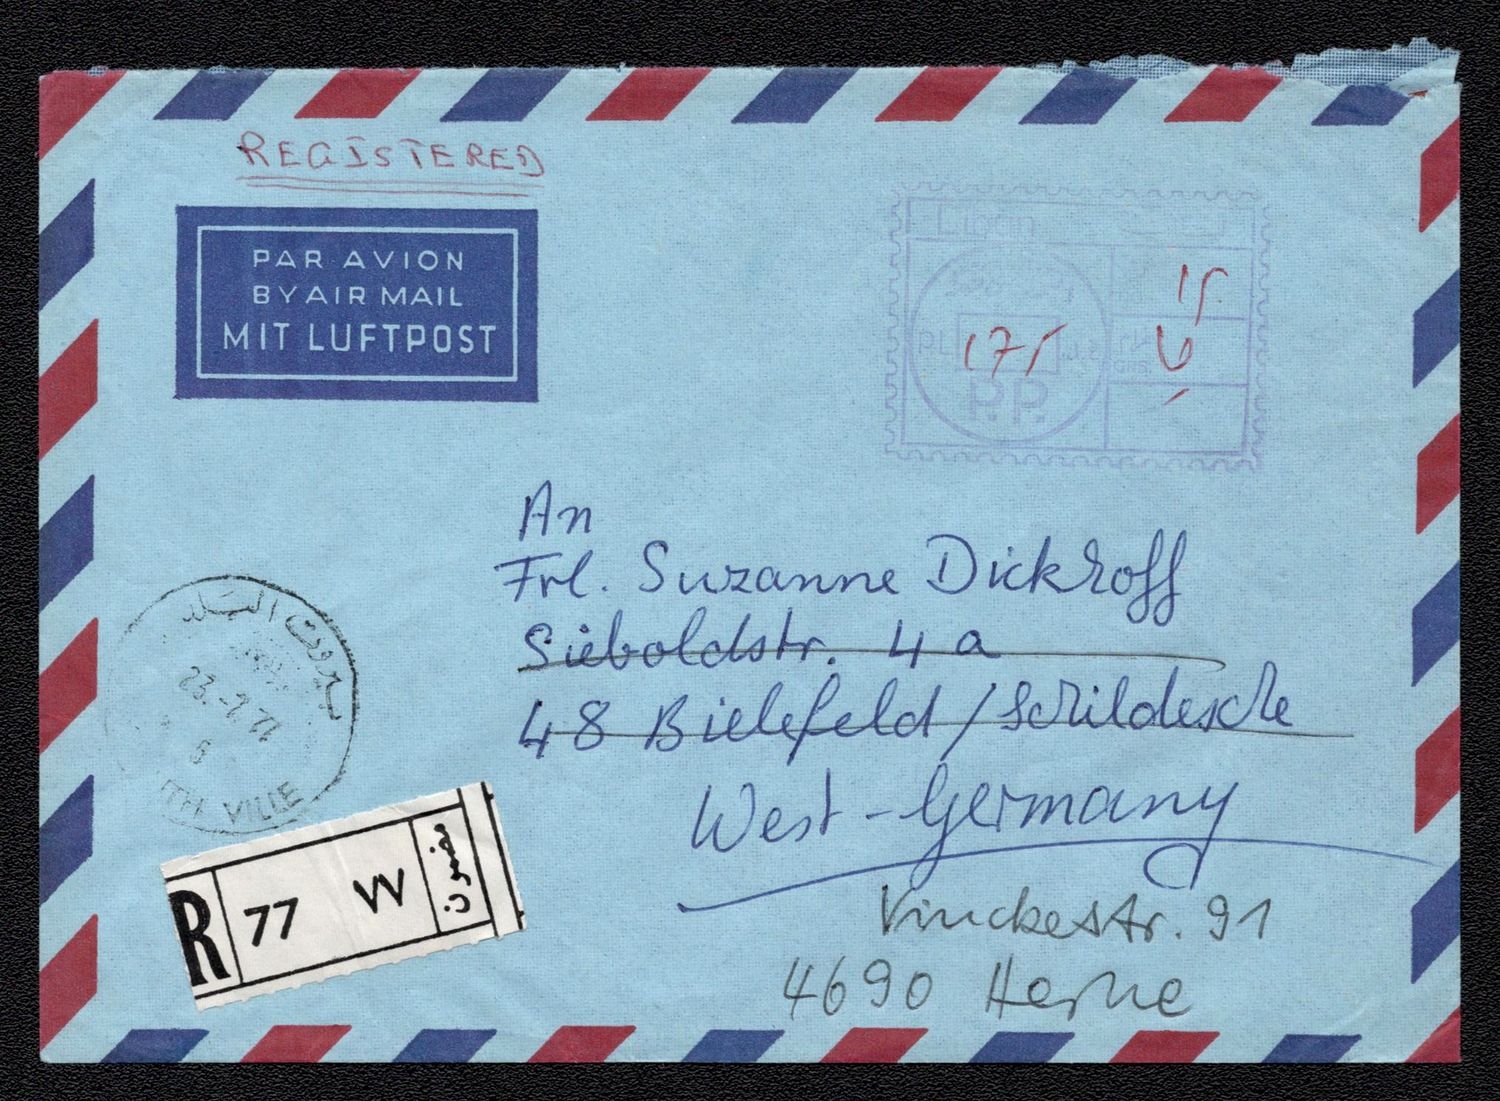 REGISTERED
PAR AVION
BY AIR MAIL
MIT LUFTPOST
Liban
١٥
P.L.
١٧٥
ل.ل.
٦
P.P.
An
Frl. Suzanne Dickhoff
Sieboldstr. 4a
48 Bielefeld/Schildesche
West-Germany
Vinckestr. 91
4690 Herne
بيروت البلد
23.-7.77
VILLE
R 77 ٧٧ مضمون